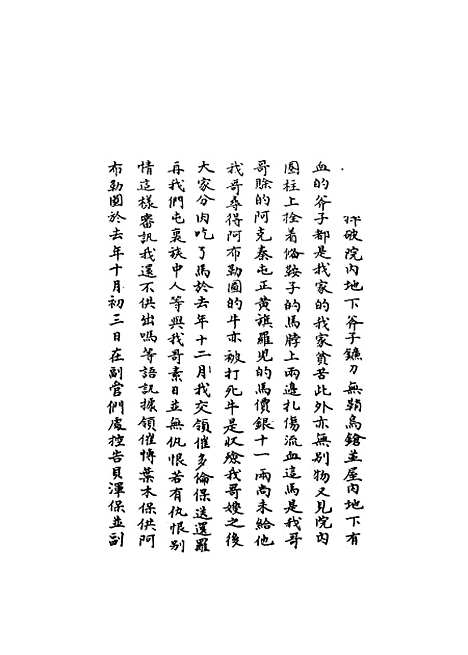 砰破院內地下斧子鐮刀無鞘烏鎗並屋內地下有
血的斧子都是我家的我家貧苦此外亦無別物又見院內
圈柱上拴着備鞍子的馬脖上兩邊扎傷流血這馬是我哥
哥賒的阿克秦屯正黃旗羅見的馬價銀十一兩尚未給他
我哥尋得阿布勒圖的牛亦被打死牛是收殮我哥嫂之後
大家分肉吃了馬於去年十二月我交領催多倫保送還羅
再我們屯裏族中人等與我哥素日並無仇恨若有仇恨別
情這樣審訊我還不供出嗎等語訊據領催博葉木保供阿
布勒圖於去年十月初三日在副管們處控告貝渾保並副